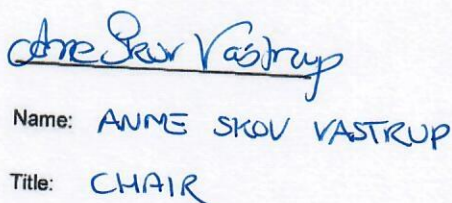 Ane Skov Vastrup
Name: ANNE SKOV VASTRUP
Title: CHAIR